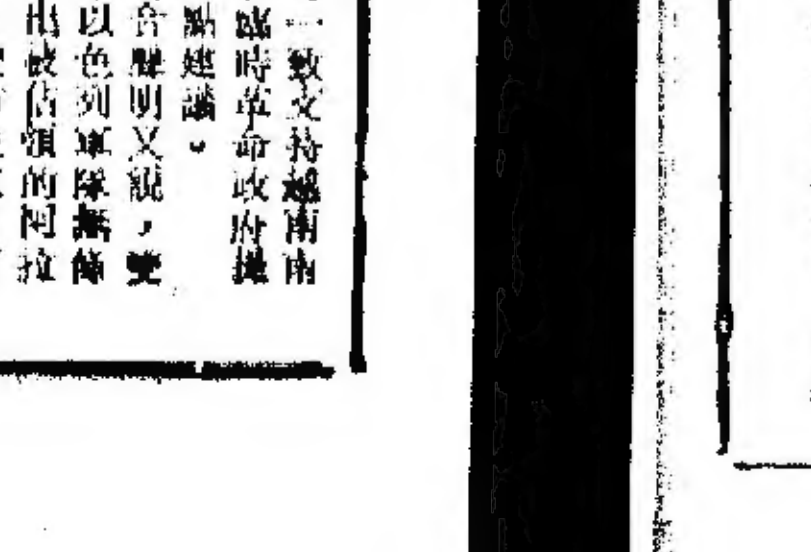 一致支持越南南
臨時革命政府提
點建議。
合聲明又說，雙
以色列軍隊無條
出被佔領的阿拉